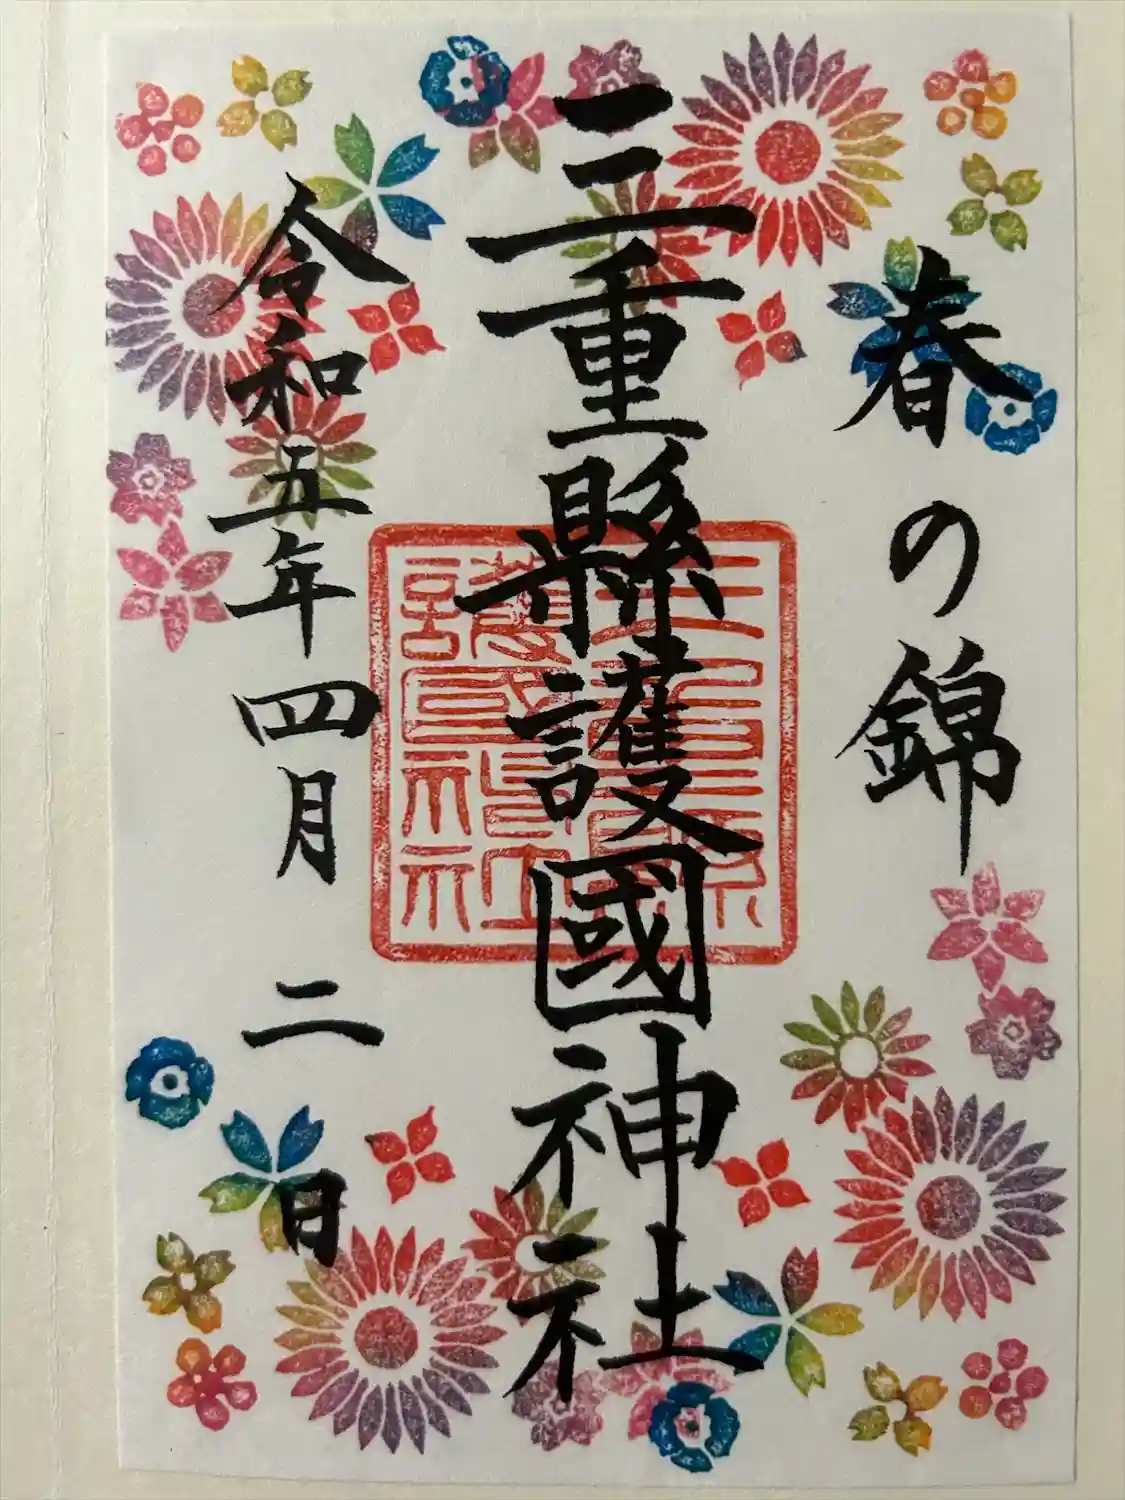 春の錦
三重縣護國神社
三重縣護國神社
令和五年四月二日